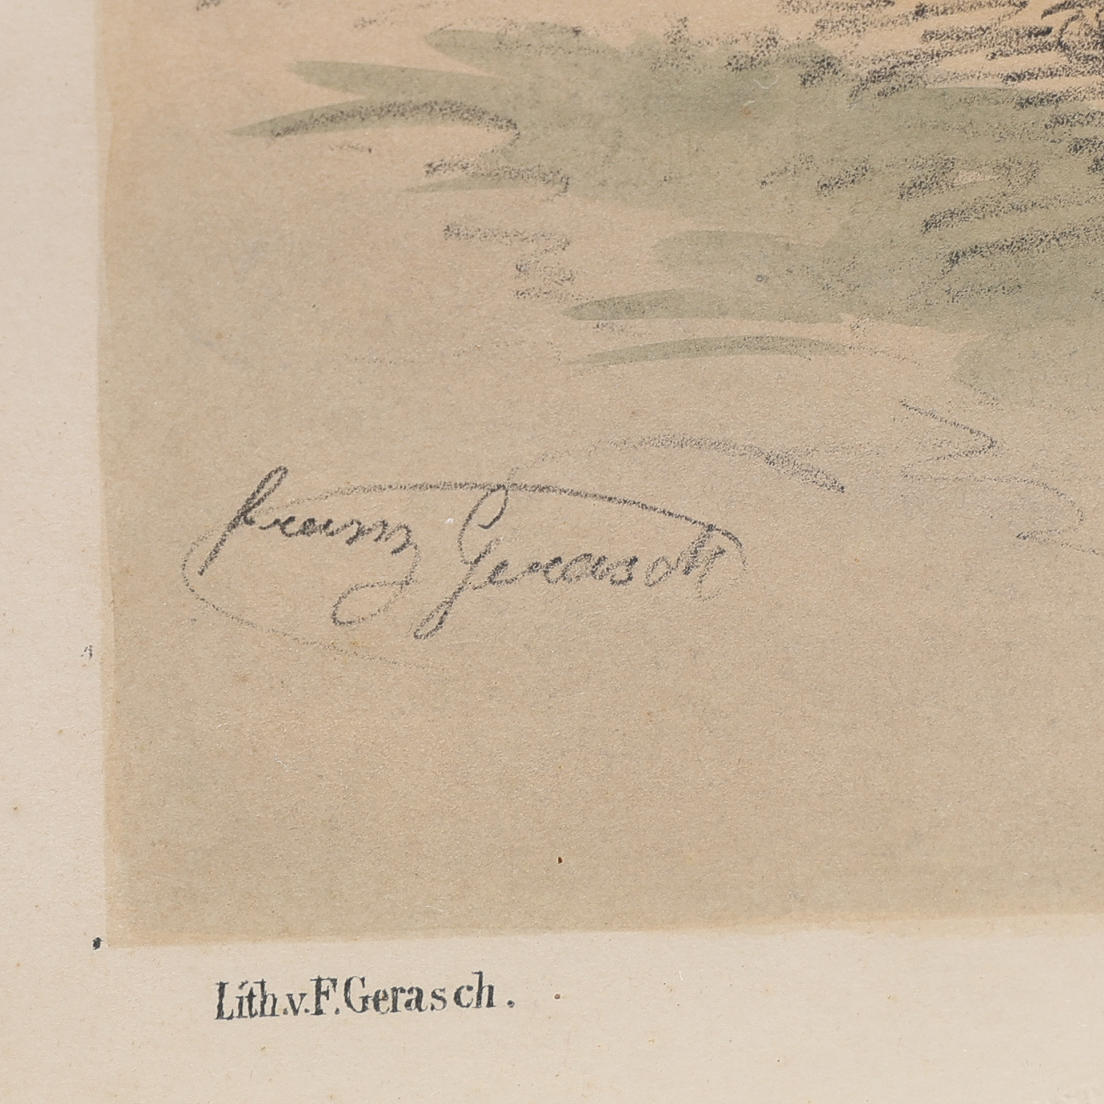 Franz Gerasch
Lith.v.F.Gerasch.